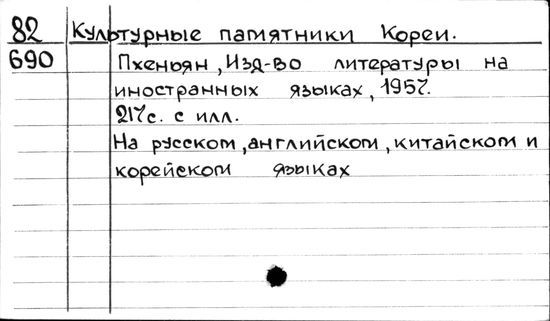 82 Культурные памятники Кореи.
690 Пхеньян, Изд-во литературы на
иностранных языках, 1957.
217с. с илл.
На русском, английском, китайском и
корейском языках